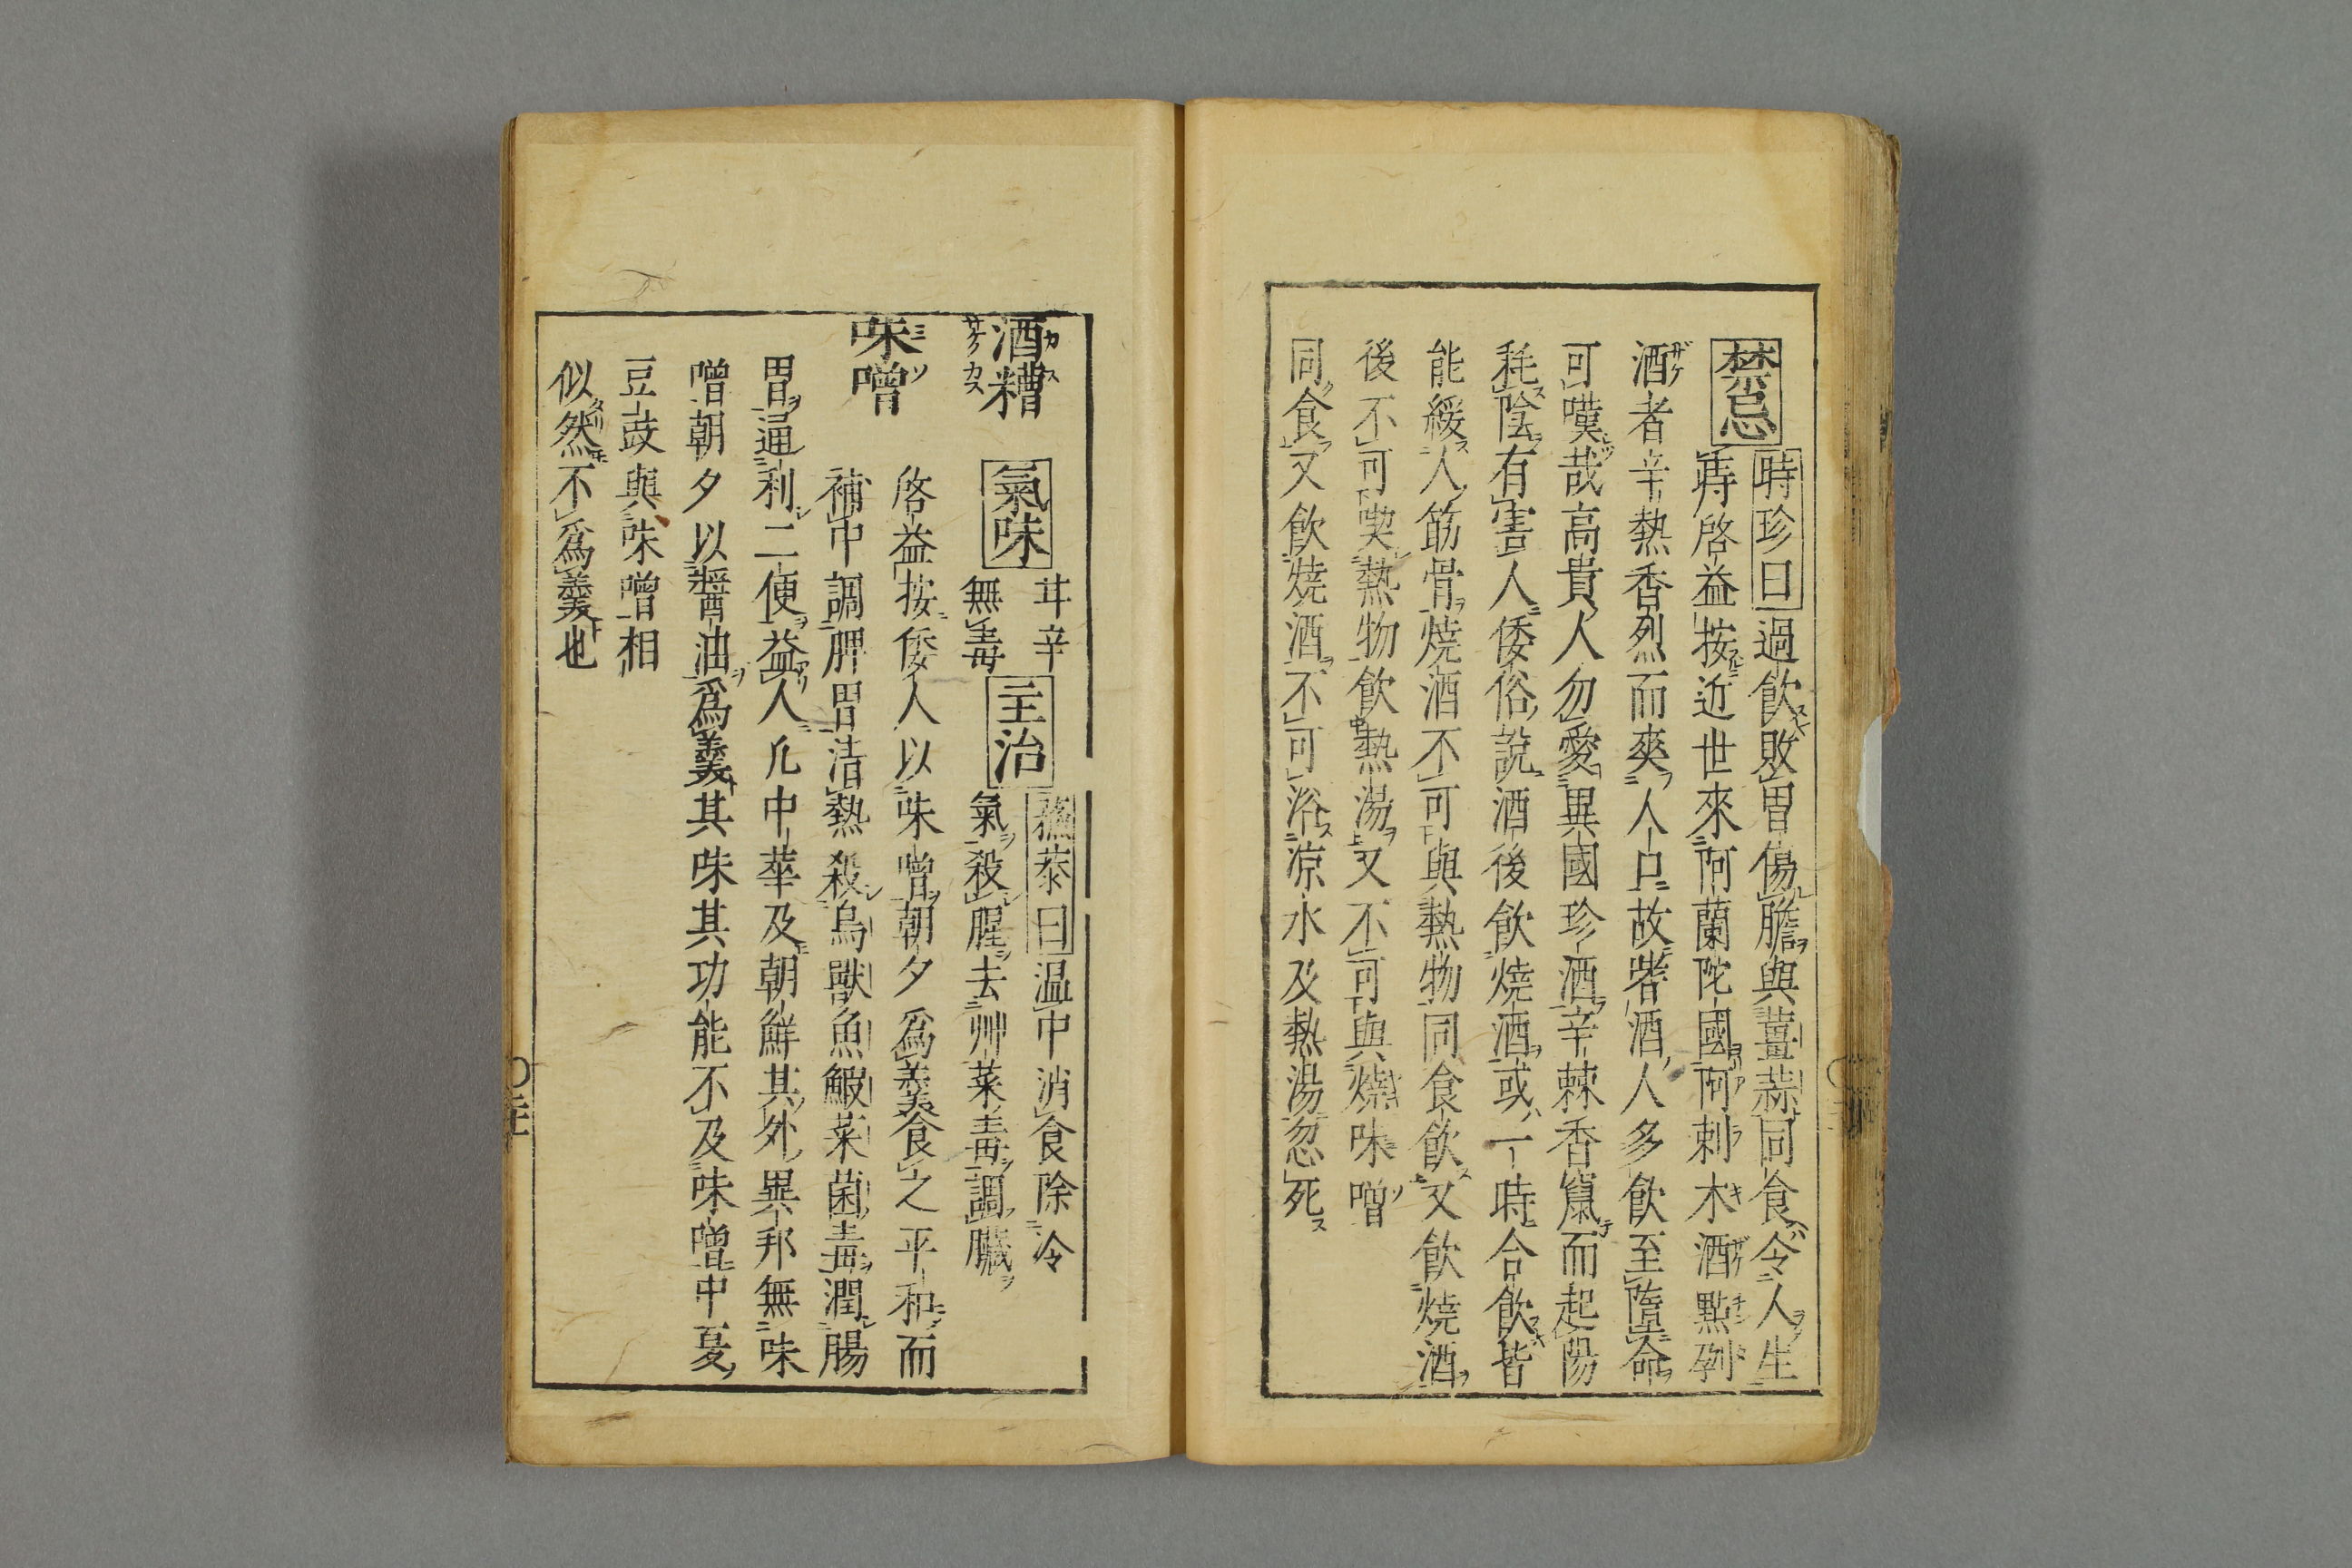 禁忌
時珍曰過飲敗胃傷膽與薑蒜同食令人生
痔啓益按近世來阿蘭陀國阿刺木酒㸃
酒者辛熱香烈而爽人口故嗜酒人多飲至隕命
可嘆哉高貴人勿愛異國珍酒辛棘香竄而起陽
耗陰有害人倭俗說酒後飲燒酒或一時合飲皆
能緩人筋骨燒酒不可與熱物同食飲又飲燒酒
後不可喫熱物飲熱湯又不可與燒味噌
同食又飲燒酒不可浴涼水及熱湯忽死
酒糟 カス サケノカス
氣味 甘辛無毒 主治 藏器曰温中消食除冷
氣殺腥去艸菜毒調臟
味噌 ミソ
啓益按倭人以味噌朝夕爲羹食之平和而
補中調脾胃淸熱殺鳥獸魚鰕菜菌毒潤腸
胃通利二便益人凢中華及朝鮮其外異邦無味
噌朝夕以醬油爲羹其味其功能不及味噌中夏
豆豉與味噌相
似然不爲羹也